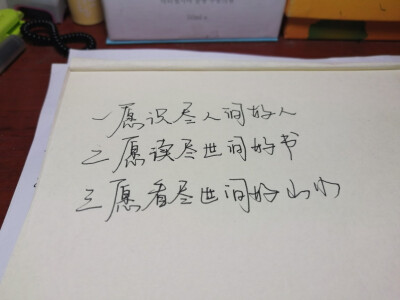 一愿识尽人间好人
二愿读尽世间好书
三愿看尽世间好山水